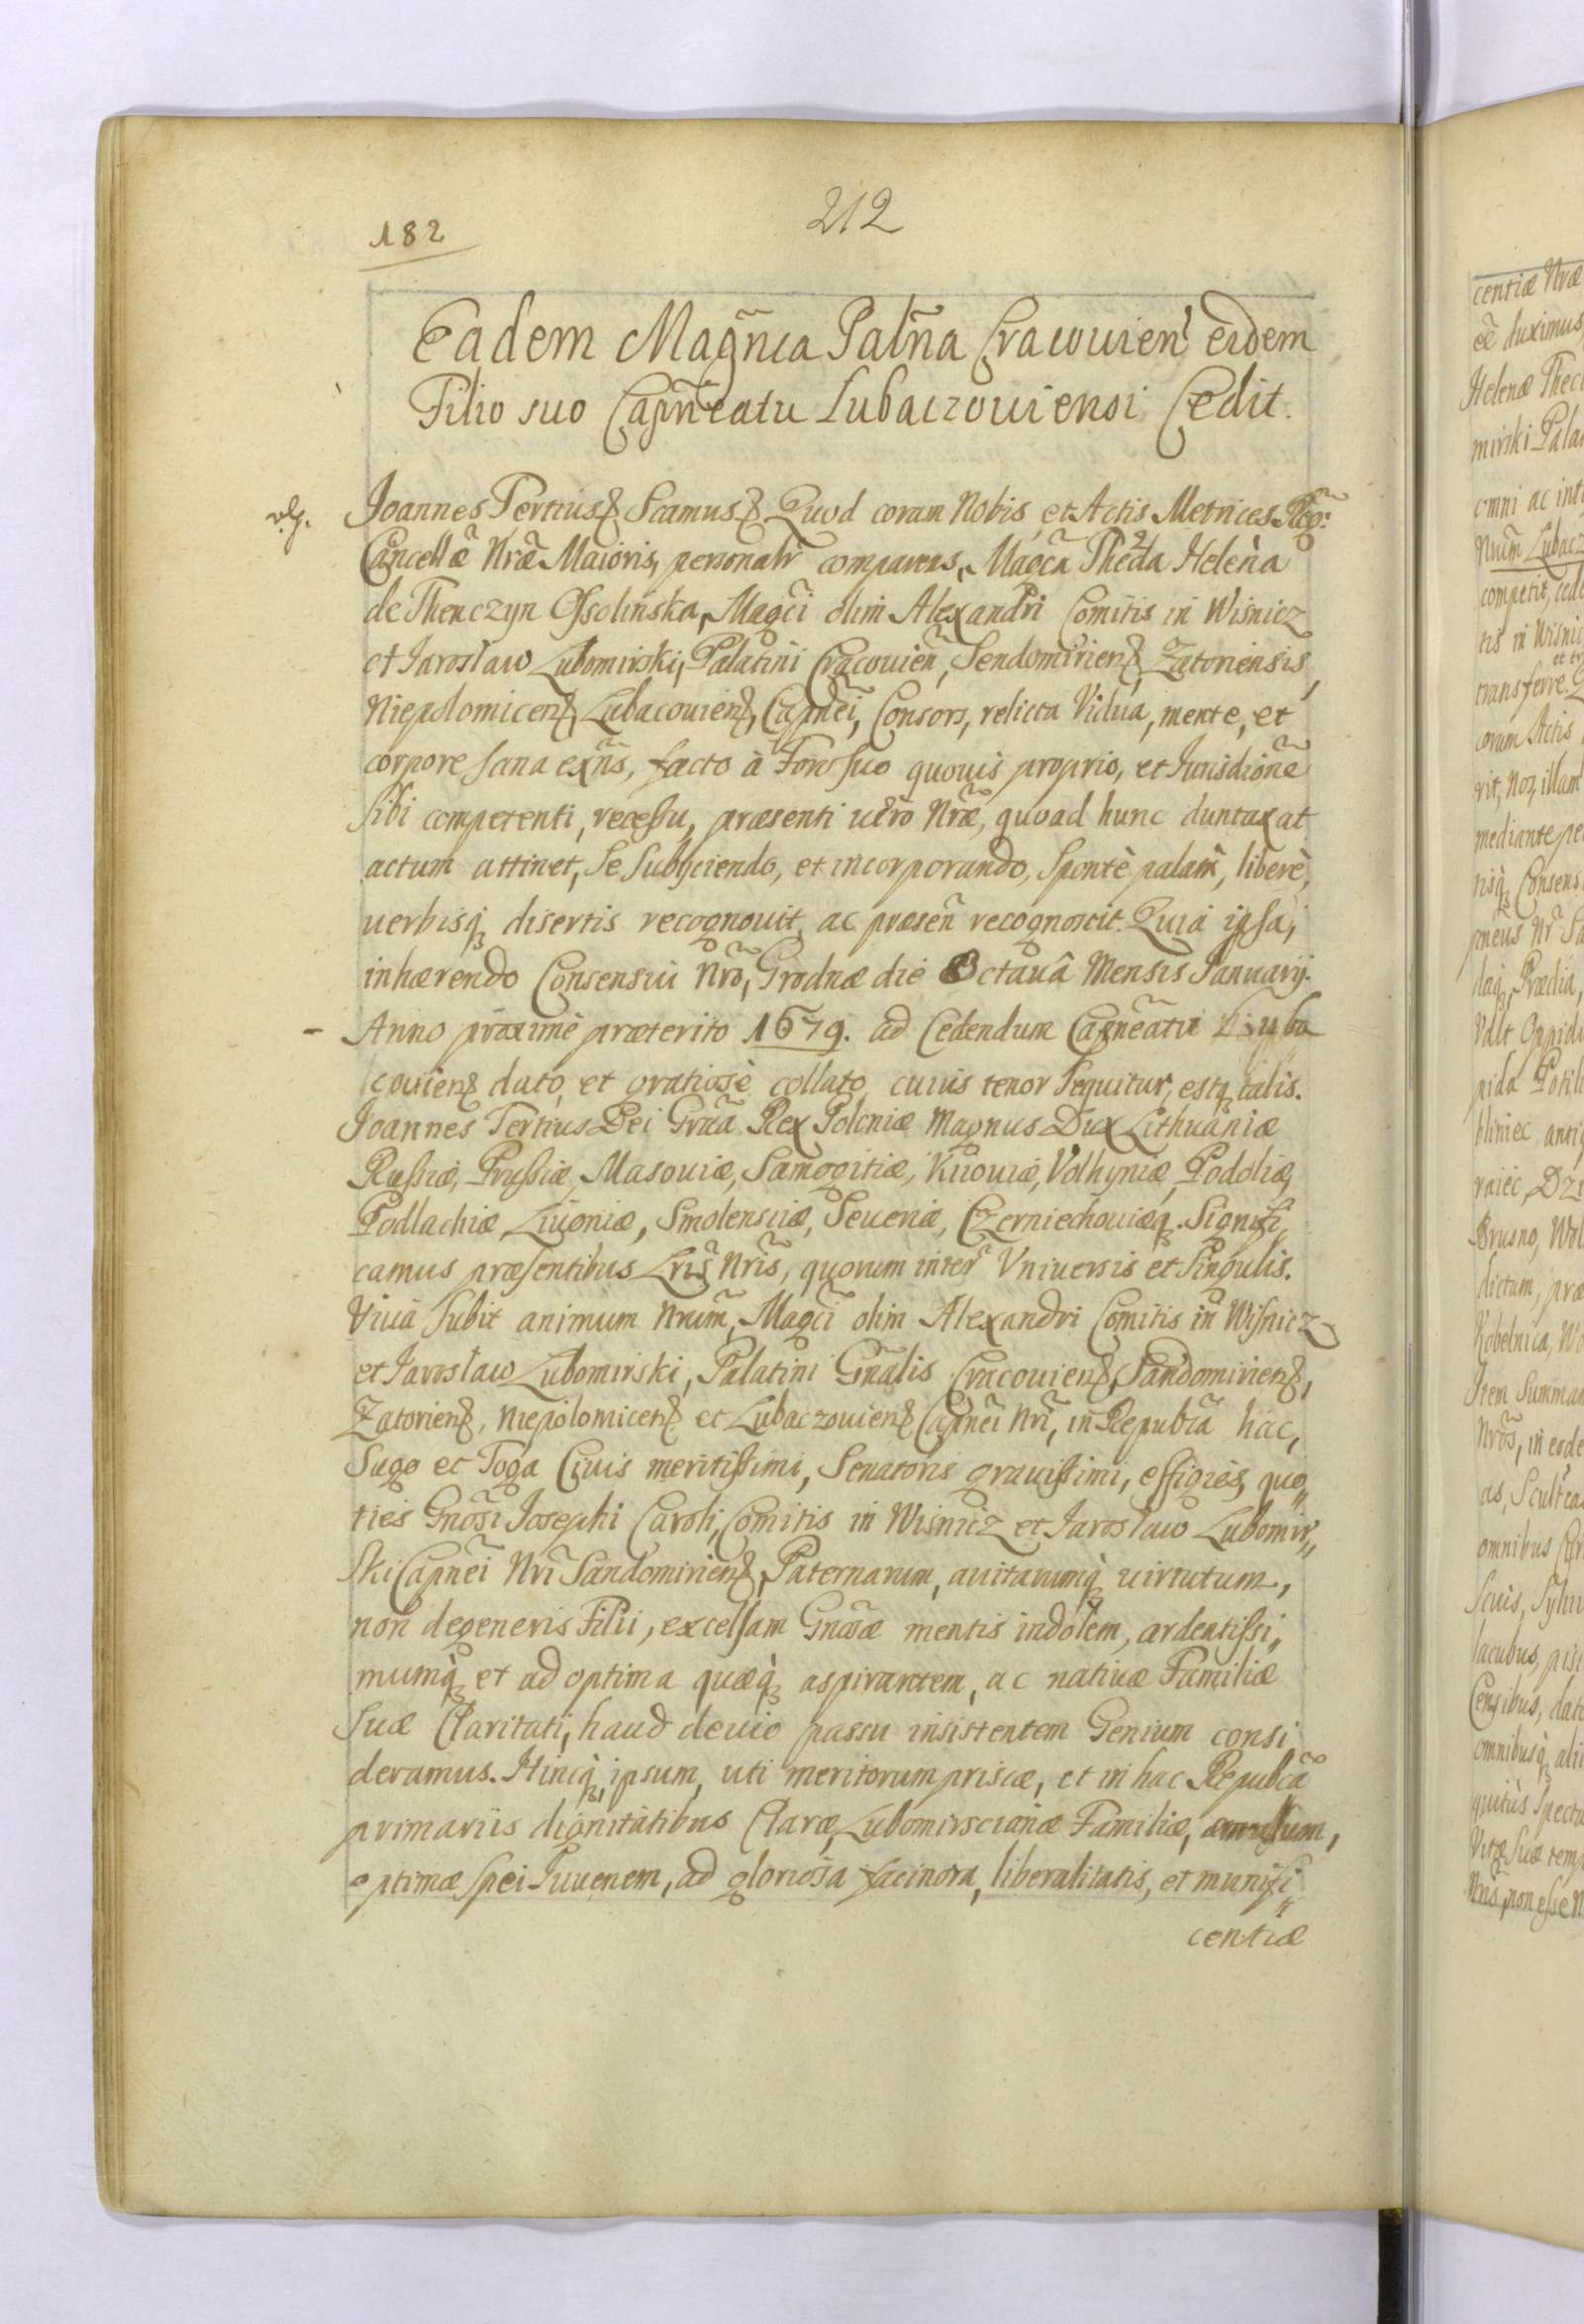 212
182
Eadem Magñca Palña Cracouien̄ eidem
Filio suo Capñeatu Lubaczouiensi Cedit.
Joannes Tertius Scamus Quod coram Nobis, et Actis Metrices Reg:
Cancellæ Nræ Maioris, personalr comparens, Magca Theda Helena
de Thenczyn Ossolińska, Magci olim Alexandri Comitis in Wiśnicz
et Jarosław Lubomirski, Palatini Cracouien̄, Sendomirien̄, Zatoriensis,
Niepolomicen̄, Lubacouien̄, Capnei, Consors, relicta Vidua, mente, et
corpore sana exñs, facto à Foro suo quouis proprio, et Jurisdione
sibi competenti, recessu, præsenti uero Nræ, quoad hunc duntaxat
actum attinet, se subijciendo, et incorporando, Spontè palam, liberè,
uerbisq disertis recognouit, ac præsen̄ recognoscit. Quia ipsa,
inhærendo Consensui Nrõ, Grodnæ die Octauâ Mensis Januarij.
Anno proximè præterito 1679. ad Cedendum Capneatu Luba
couien̄ dato, et gratiosè collato, cuius tenor sequitur, estq talis.
Joannes Tertius Dei Gratia Rex Poloniæ Magnus Dux Lithuaniæ
Russiæ, Prussiæ, Masouiæ, Samogitiæ, Kiiouiæ, Volhyniæ, Podoliæ,
Podlachiæ Liuoniæ, Smolensciæ, Seueriæ, Czerniechouiæq. Signifi,
camus præsentibus Lris Nris, quorum inter̄ Vniuersis et Singulis.
Viua subit animum Nrum, Magci olim Alexandri Comitis in Wisnicz
et Jarosław Lubomirski, Palatini Gñalis Cracouien̄, Sandomirien̄,
Zatorien̄, Niepolomicen̄ et Lubaczouien̄ Capnei Nri, in Republca hac,
Sago et Toga Ciuis meritissimi, Senatoris grauissimi, effigies, quo„
ties Gnosi Josephi Caroli, Comitis in Wiśnicz et Jarosław Lubomir„
ski Capnei Nri Sandomirien̄, Paternarum, auitarumq uirtutum,
non degeneris Filii, excelsam Gnosæ mentis indolem, ardentissi„
mumq et ad optima quæq aspirantem, ac natiuæ Familiæ
suæ Claritati, haud deuio passu insistentem Genium consi
deramus. Hincq ipsum, uti meritorum priscæ, et in hac Republca
primariis dignitatibus Claræ, Lubomirscianæ Familiæ,
optimæ spei Juuenem, ad gloriosa facinora, liberalitatis, et munifi„
centiæ